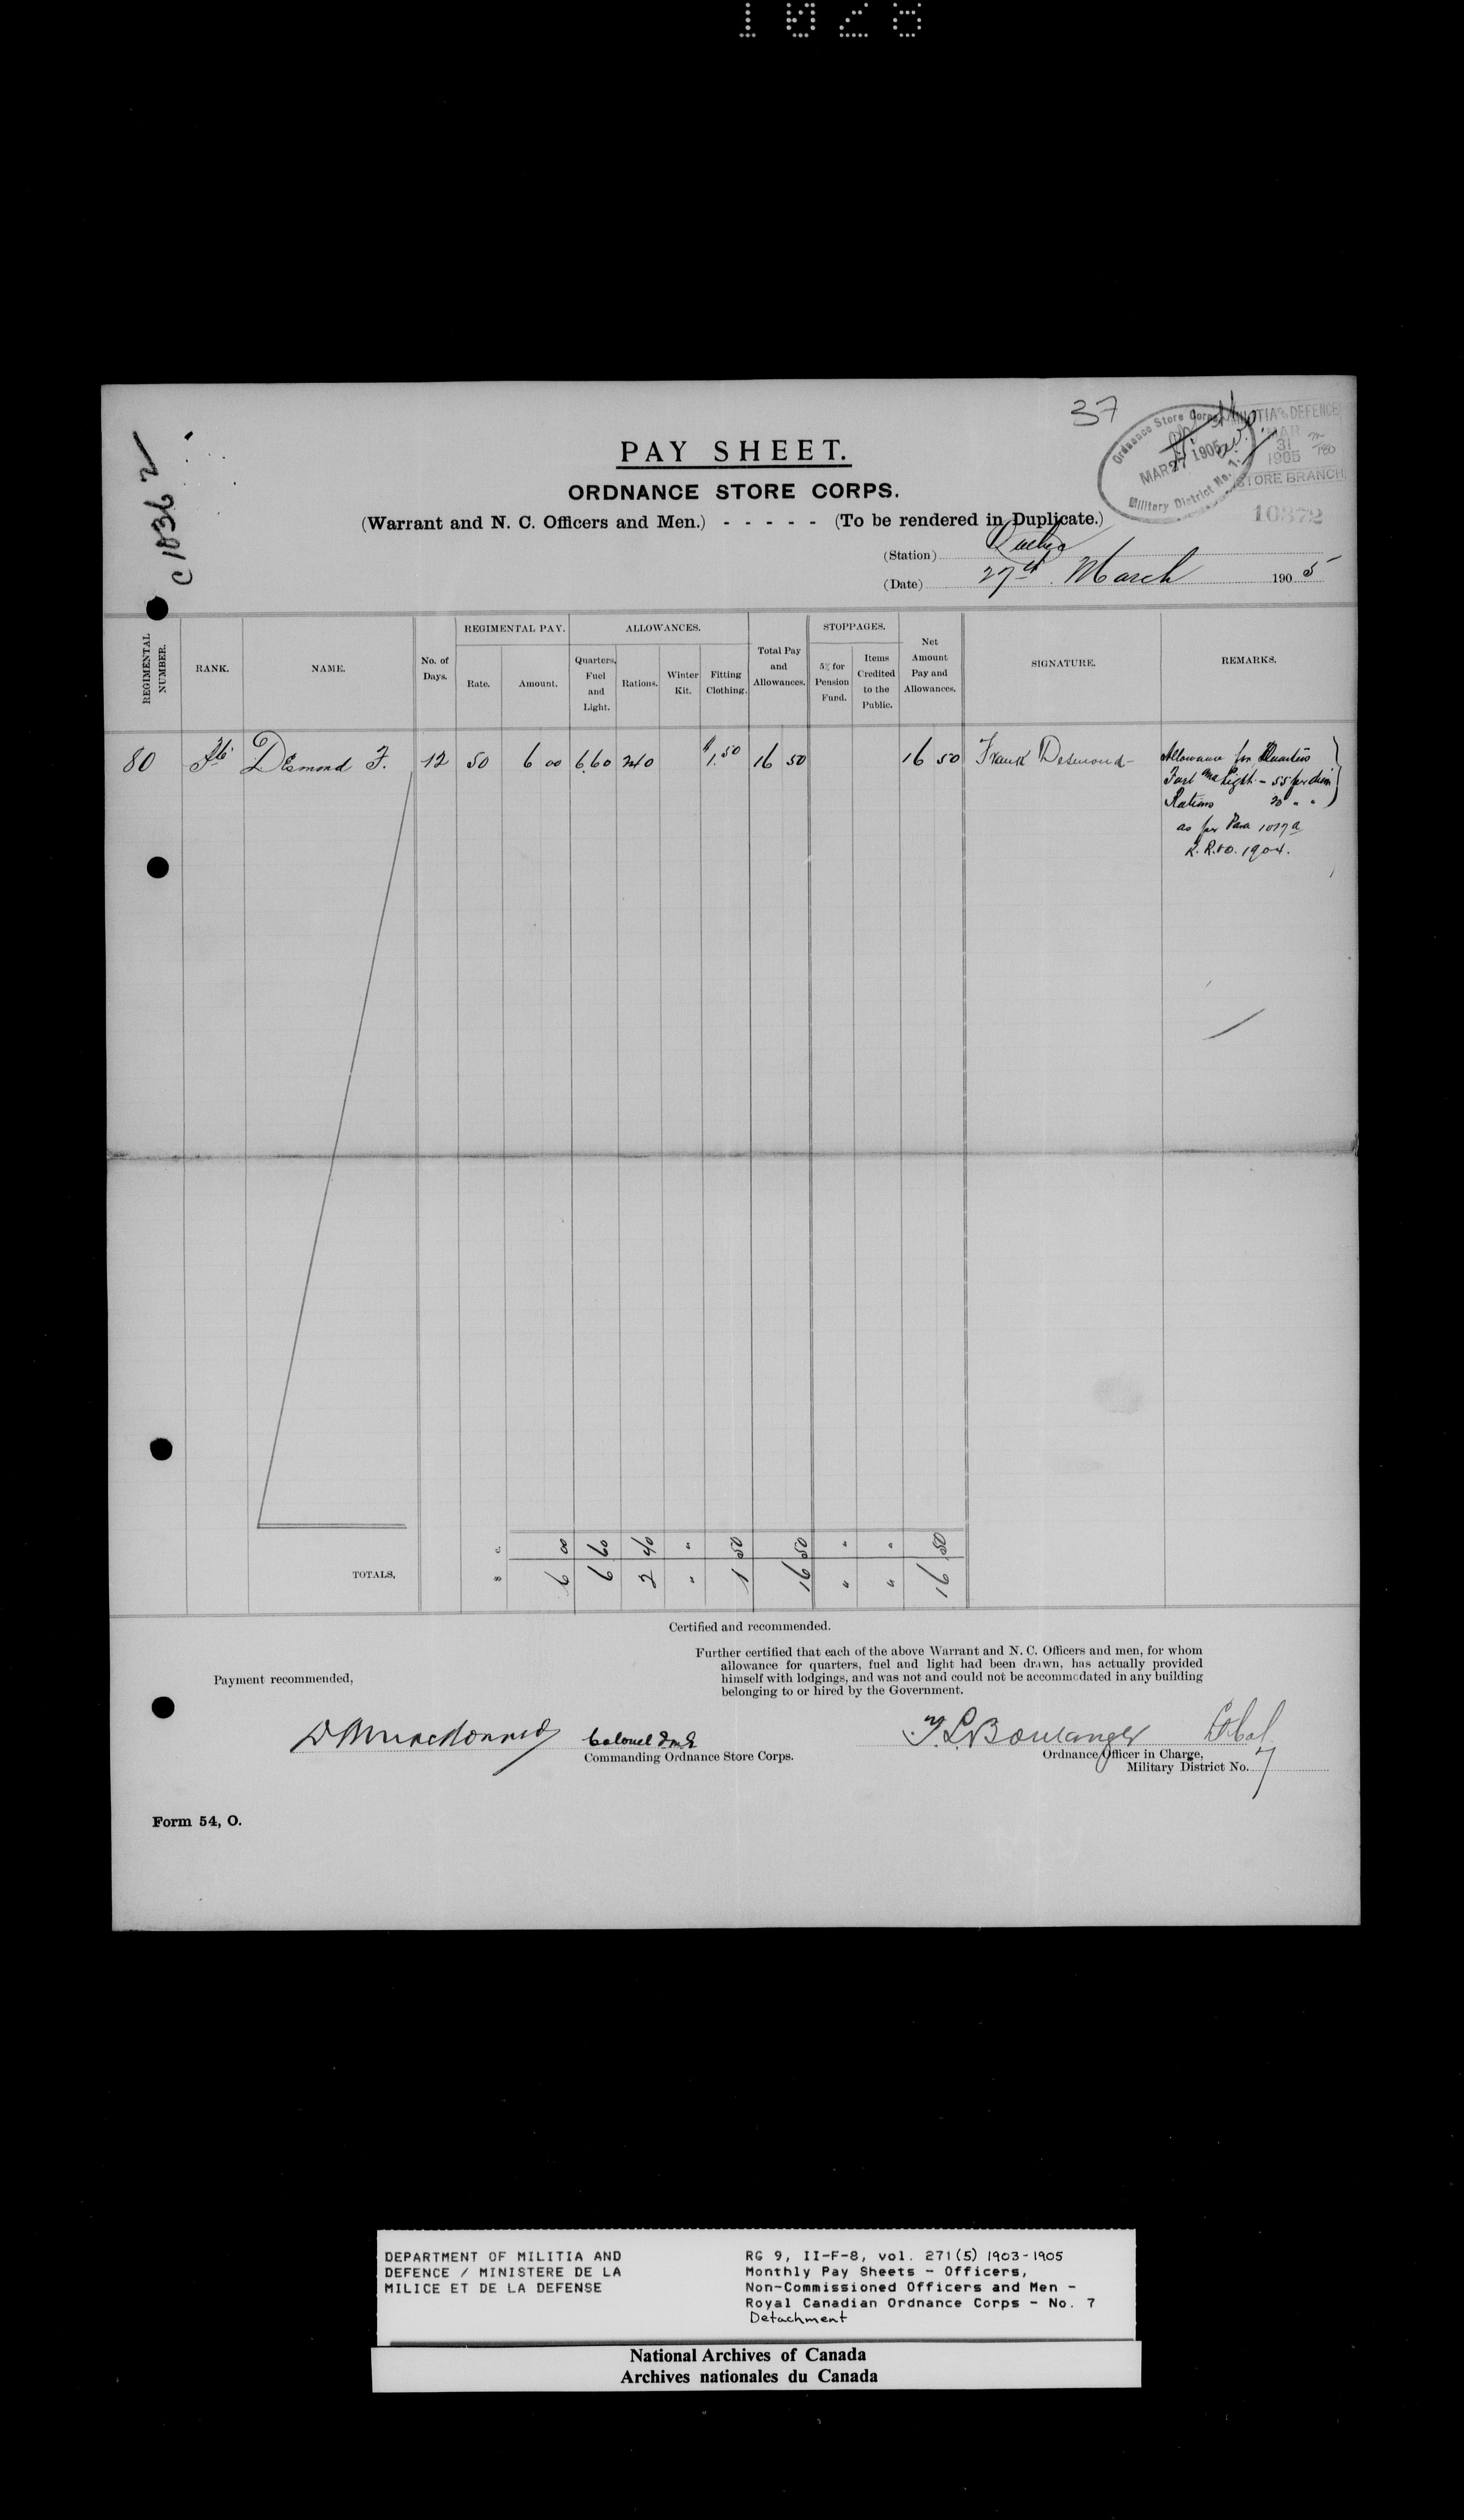 1028
37
C 1036 2
PAY SHEET.
ORDNANCE STORE CORPS.
(Warrant and N. C. Officers and Men.) - - - - - (To be rendered in Duplicate.)
Ordnance Store Corps
MAR 27 1905
Military District No. 7.
MILITIA & DEFENCE
MAR
31
1905
STORE BRANCH
10872
(Station) Quebec
(Date) 27th March 1905
REGIMENTAL NUMBER. RANK. NAME. No. of Days. REGIMENTAL PAY. Rate. Amount. ALLOWANCES. Quarters, Fuel and Light. Rations. Winter Kit. Fitting Clothing. Total Pay and Allowances. STOPPAGES. 5% for Pension Fund. Items Credited to the Public. Net Amount Pay and Allowances. SIGNATURE. REMARKS.
80 Pte Desmond F. 12 50 6 00 6.60 2 40 $1.50 16 50 16 50 Frank Desmond
Allowance for Quarters
Fuel and Light - 55 per diem
Rations 20 " "
as per Para 1017a
K. R. & O. 1904.
TOTALS. $ c. 6 00 6 60 2 40 " " 1 50 16 50 " " " " 16 50
Certified and recommended.
Further certified that each of the above Warrant and N. C. Officers and men, for whom
allowance for quarters, fuel and light had been drawn, has actually provided
himself with lodgings, and was not and could not be accommodated in any building
belonging to or hired by the Government.
Payment recommended,
D A Macdonald Colonel
Commanding Ordnance Store Corps.
Boulanger
Ordnance Officer in Charge,
Military District No. 7
Form 54, O.
DEPARTMENT OF MILITIA AND
DEFENCE / MINISTERE DE LA
MILICE ET DE LA DEFENSE
RG 9, II-F-8, vol. 271(5) 1903-1905
Monthly Pay Sheets - Officers,
Non-Commissioned Officers and Men -
Royal Canadian Ordnance Corps - No. 7
Detachment
National Archives of Canada
Archives nationales du Canada